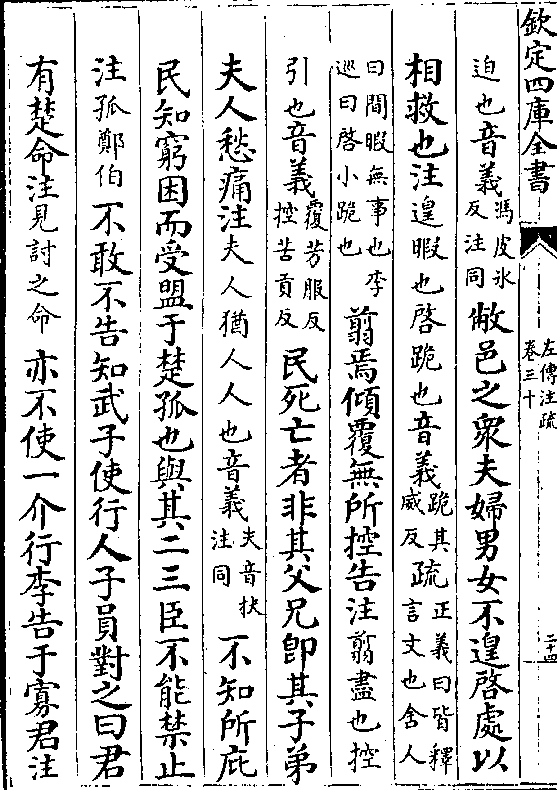 欽定四庫全書
左傳注疏
卷三十
二十四
迫也音義馮皮氷
反注同敝邑之衆夫婦男女不遑啓處以
相救也注遑暇也啓跪也音義跪其
威反疏正義曰皆釋
言文也舍人
曰閒暇無事也李
巡曰啓小跪也翦焉傾覆無所控告注翦盡也控
引也音義覆芳服反
控苦貢反民死亡者非其父兄卽其子弟
夫人愁痛注夫人猶人人也音義夫音扶
注同不知所庇
民知窮困而受盟于楚孤也與其二三臣不能禁止
注孤鄭伯不敢不告知武子使行人子員對之曰君
有楚命注見討之命亦不使一介行李告于寡君注